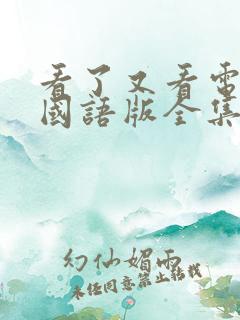 看了又看電
國語版全集
幻仙媚雨
未经同意禁止转载